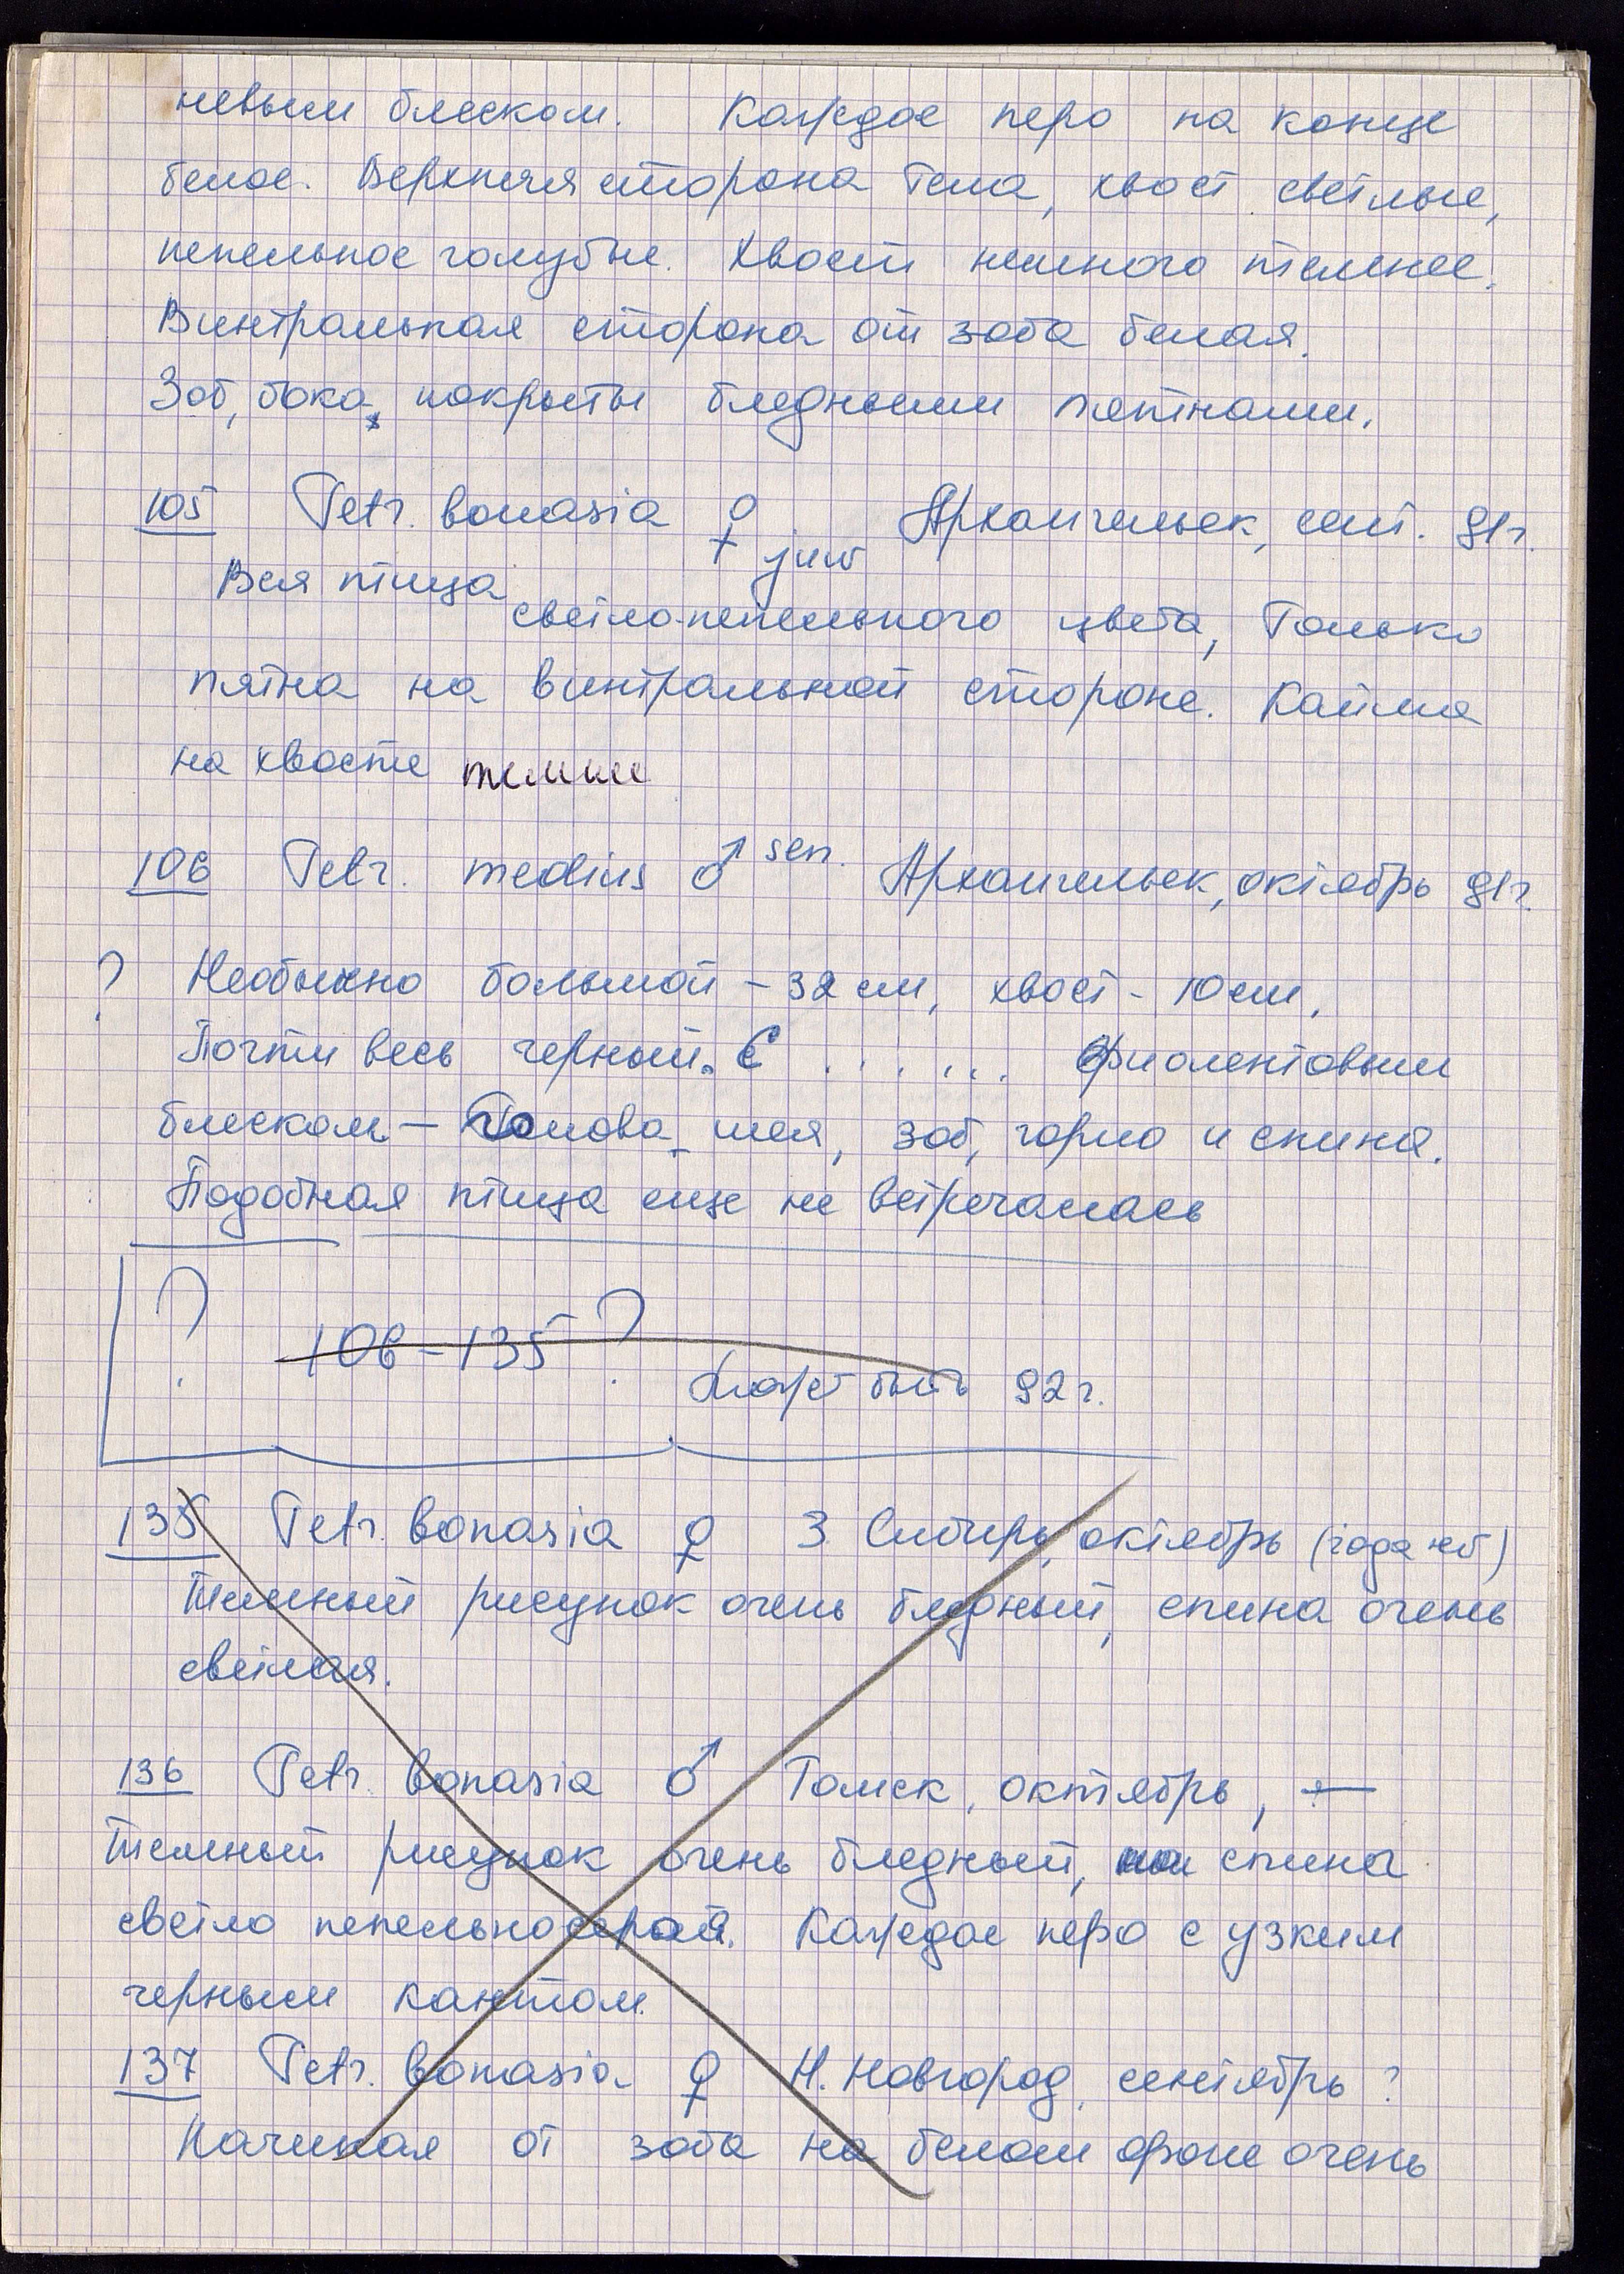 невым блеском. Каждое перо на конце
белое. Верхняя сторона тела, хвост светлые,
пепельное голубые. Хвост немного темнее.
Винтральная сторона от зоба белая.
Зоб, бока покрыты бледными пятнами.
105 Tetr. bonasia ♀ juv Архангельск, сент. 91г.
Вся птица
светло-пепельного цвета, только
пятна на винтральной стороне. Кайма
на хвосте темнее
106 Tetr. medius ♂ sen. Архангельск, октябрь 91г.
? Необычно большой - 32 см, хвост - 10 см,
Почти весь черный. С . . . . . . фиолетовым
блеском — Голова, шея, зоб, горло и спина.
Подобная птица еще не встречалась
? 106-135 ?
Может быть 92г.
135 Tetr. bonasia ♀ З. Сибирь, октябрь (года нет)
Темный рисунок очень бледный, спина очень
светлая.
136 Tetr. bonasia ♂ Томск, октябрь, —
Темный рисунок очень бледный, спина
светло пепельносерая. Каждое перо с узким
черным кантом.
137 Tetr. bonasia ♀ Н. Новгород, сентябрь ?
Начиная от зоба на белом фоне очень